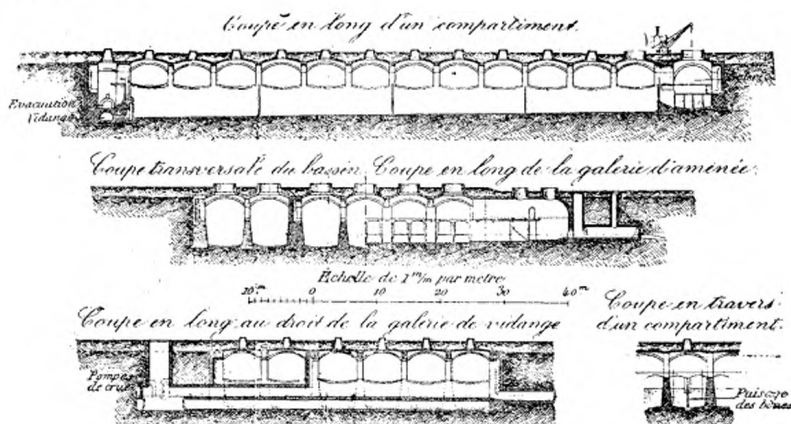 Coupe en long d'un compartiment.
Evacuation
Vidange
Galerie
Coupe transversale du bassin. Coupe en long de la galerie d'amenée.
Échelle de 1 m/m par metre
10 m 0 10 20 30 40 m
Coupe en long au droit de la galerie de vidange
Coupe en travers
d'un compartiment.
Pompes
de crue
Puisage
des boues